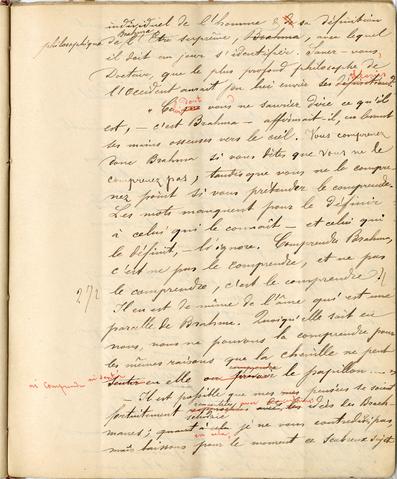 individuel de l'homme & sa définition
philosophique de l'Être suprême, Brahma, avec lequel
Brahma
il doit un jour s'identifier. Savez-vous,
Docteur, que le plus profond philosophe de
l'Occident aurait pu lui envier ses définitions?
"Ce dont vous ne sauriez dire ce qu'il
est, – c'est Brahma – affirmait-il, en levant
ses mains osseuses vers le ciel. Vous comprenez
donc Brahma si vous dites que vous ne le
comprenez pas, tandis que vous ne le compre-
nez point si vous prétendez le comprendre.
Les mots manquent pour le définir
à celui qui le connaît – et celui qui
le définit, – l'ignore. Comprendre Brahma,
c'est ne pas le comprendre, et ne pas
le comprendre, c'est le comprendre"
272
Il en est de même de l'âme qui est une
parcelle de Brahma. Quoiqu'elle soit en
nous, nous ne pouvons la comprendre pour
les mêmes raisons que la chenille ne peut
ni comprendre ni sentir en elle le papillon...
– Il est possible que mes pensées se soient
fortuitement rencontrées avec les idées des Brah-
manes; quant à cela je ne vous contredis pas
mais laissons pour le moment ce scabreux sujet